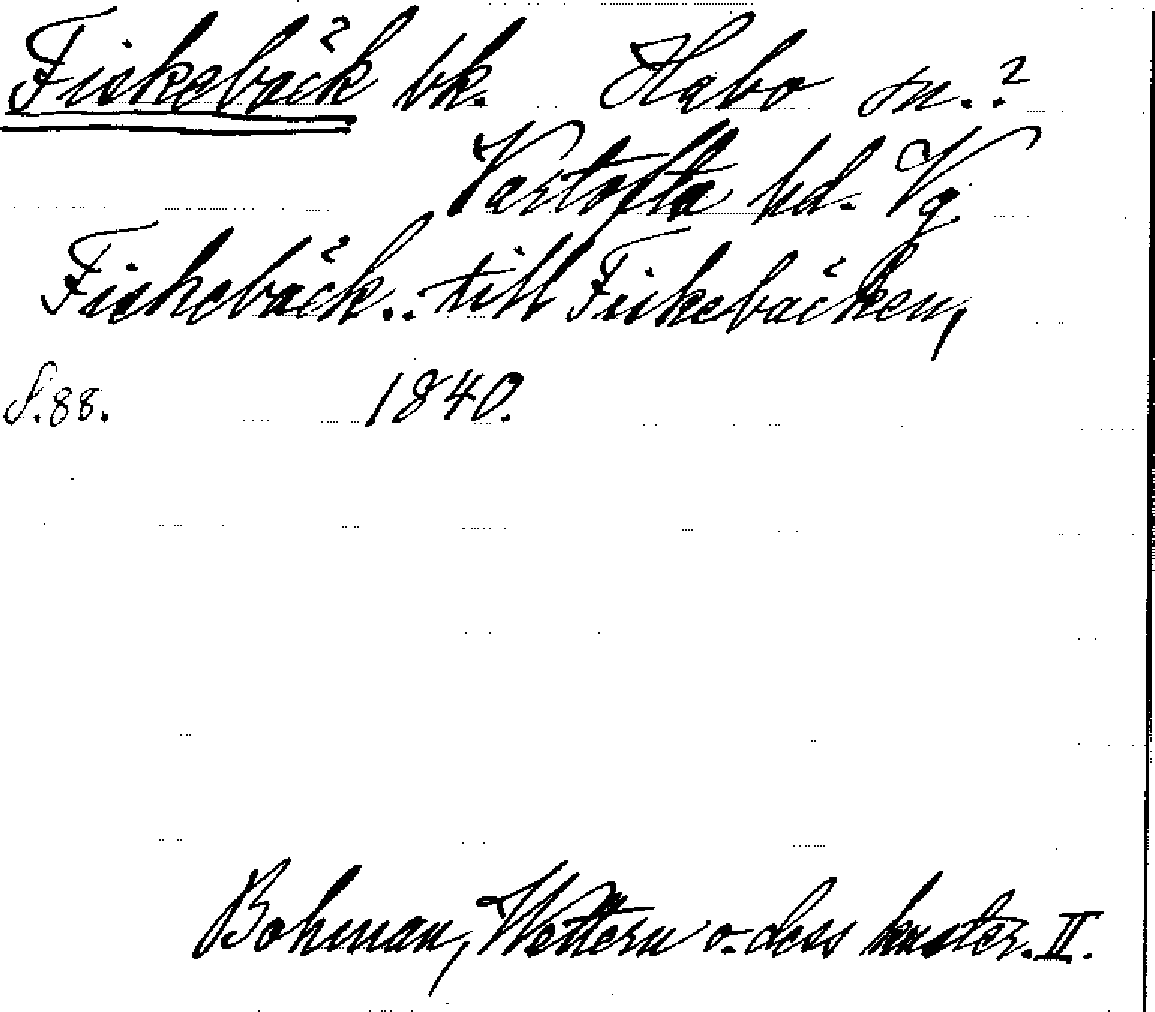 Fiskebäck bk. Habo sn.?
Vartofta hd. Vg
Fiskebäck.. till Fiskebäcken,
S. 88. 1840.
Bohman, Wettern o. dess kuster. II.